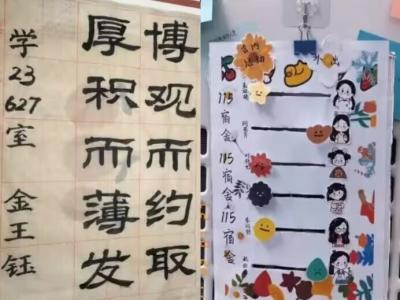 博观而约取
厚积而薄发
学23
627室
金王钰
室内
活动
外出
115
宿舍
115
宿舍
115
宿舍